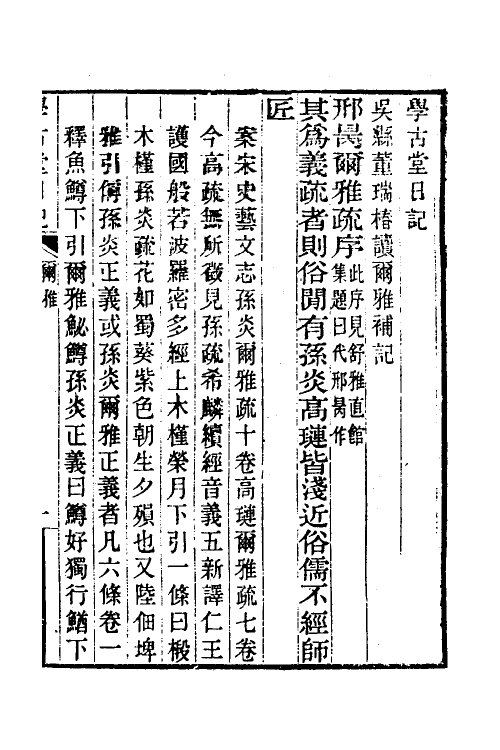 學古堂日記
吳縣董瑞椿讀爾雅補記
邢昺爾雅疏序此序見舒雅直館
集題曰代邢昺作
其爲義疏者則俗閒有孫炎高璉皆淺近俗儒不經師
匠
案宋史藝文志孫炎爾雅疏十卷高璉爾雅疏七卷
今高疏無所徵見孫疏希麟續經音義五新譯仁王
護國般若波羅密多經上木槿榮月下引一條曰椴
木槿孫炎疏花如蜀葵紫色朝生夕殞也又陸佃埤
雅引偁孫炎正義或孫炎爾雅正義者凡六條卷一
釋魚鱒下引爾雅鮅鱒孫炎正義曰鱒好獨行鰌下
學古堂日記
爾雅
一